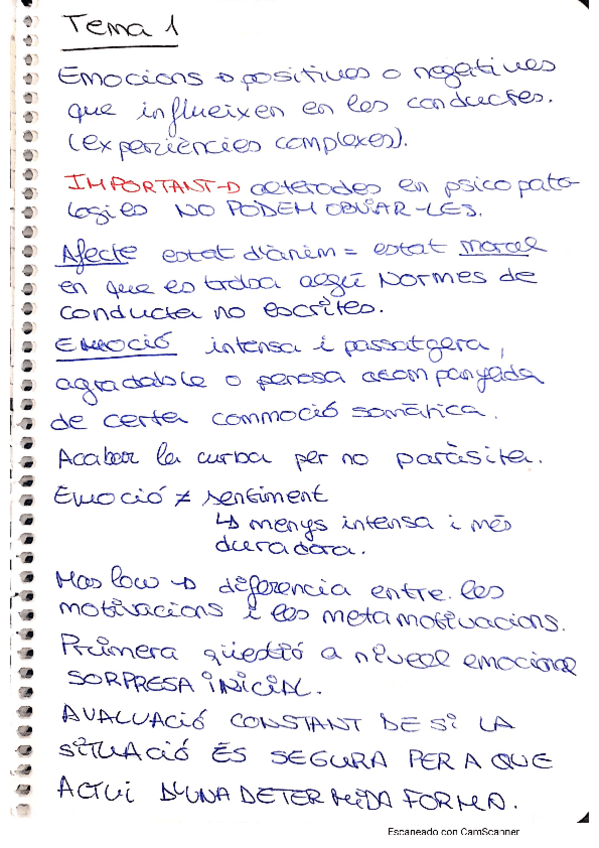 Tema 1
Emocions → positives o negatives
que influeixen en les conductes.
(experiències complexes).
IMPORTANT → alterades en psicopato-
logies NO PODEM OBVIAR-LES.
Afecte estat d'ànim = estat moral
en que es troba algú Normes de
conducta no escrites.
EMOCIÓ intensa i passatgera,
agradable o penosa acompanyada
de certa commoció somàtica.
Acabar la curba per no paràsita.
Emoció ≠ sentiment
↳ menys intensa i més
duradora.
Maslow → diferencia entre les
motivacions i les metamotivacions.
Primera qüestió a nivell emocional
SORPRESA INICIAL.
AVALUACIÓ CONSTANT DE SI LA
SITUACIÓ ÉS SEGURA PER A QUE
ACTUI D'UNA DETERMIDA FORMA.
Escaneado con CamScanner